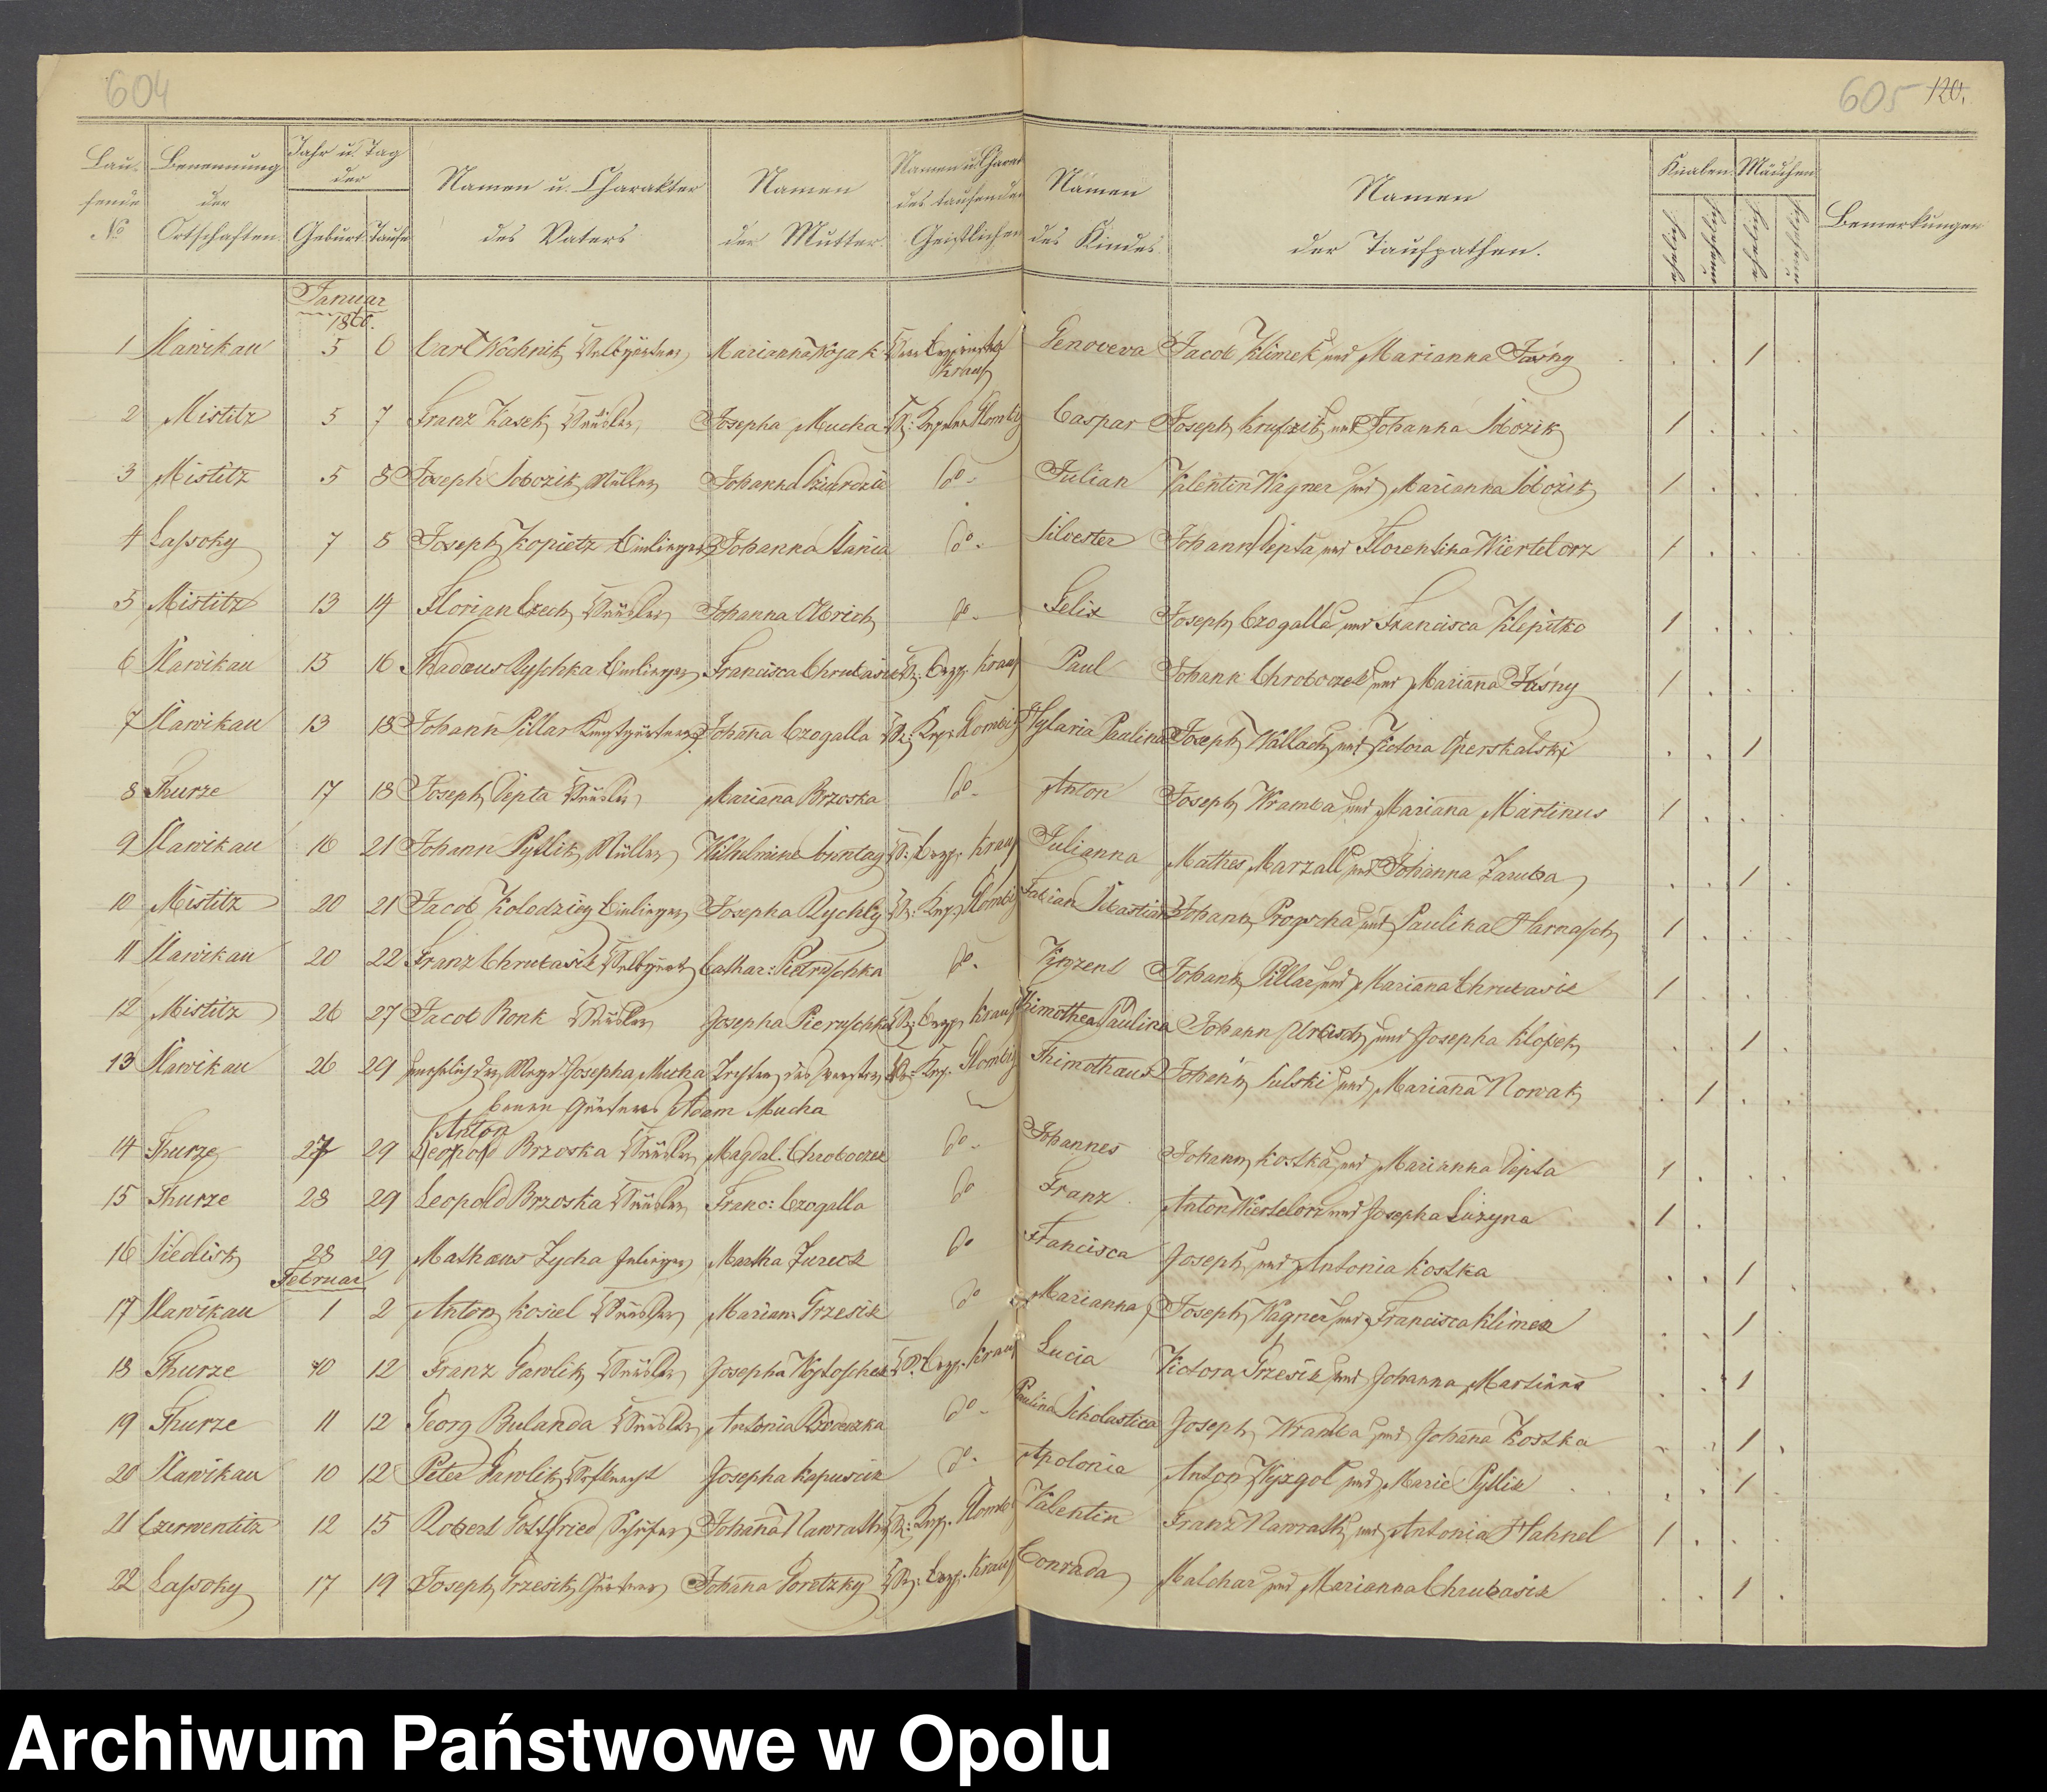 604
605 120.
Lau- fende No
Benennung der Ortschaften
Jahr u. Tag der Geburt Taufe
Namen u. Charakter des Vaters
Namen der Mutter
Namen u. Charak des taufenden Geistlichen
Namen des Kindes
Namen der Taufpathen.
Knaben ehelich unehelich
Mädchen ehelich unehelich
Bemerkungen
Januar
1860.
1 Slawikau 5 6 Carl Wochnik Marianna Wojak Kraus Genoveva Jacob Klimek und Marianna Jasny 1
2 Mistitz 5 7 Franz Kasek Häusler Josepha Mucha Hr: Kaplan Glombig Caspar Joseph und Johanna Sobozik 1
3 Mistitz 5 8 Joseph Sobozik Müller Johanna do- Julian Valentin Wagner und Marianna Sobozik 1
4 Lassoky 7 8 Joseph Kopietz Einlieger Johanna Stania do- Silvester Johann Depta und Florentina Wiertelorz 1
5 Mistitz 13 14 Florian Czech Häusler Johanna Olbrich do- Felix Joseph Czogalla und Francisca Klepitko 1
6 Slawikau 15 16 Thadæus Ryschka Einlieger Francisca Chrubasik Hr. Kraus Paul Johann Chroboczek und Marianna Jasny 1
7 Slawikau 13 18 Johann Pillar Johanna Czogalla Hr. Kap. Glombig Hylaria Paulina Joseph Wallach und Victoria Operskalski 1
8 Thurze 17 18 Joseph Depta Häusler Marianna Brzoska do- Anton Joseph Wramba und Marianna Martinus 1
9 Slawikau 16 21 Johann Pytlik Müller Wilhelmine Sonntag Hr: Kraus Julianna Mathes Marzall und Johanna Zaruba 1
10 Mistitz 20 21 Jacob Kolodziey Einlieger Josepha Rychly Hr. Kap. Glombig Fabian Sebastian Johann Progscha und Paulina Harnasch 1
11 Slawikau 20 22 Franz Chrubasik Cathar: Pietraschka do- Vinzent Johann Pillar und Marianna Chrubasik 1
12 Mistitz 26 27 Jacob Ronk Häusler Josepha Pieraschka Hr. Kraus Timothea Paulina Johann und Josepha Klosek 1
13 Slawikau 26 29 unehelich der Magd Josepha Mucha Tochter des verstor Hr. Kap. Glombig Thimothæus Johann Sulski und Marianna Nowak 1
benen Gärtners Adam Mucha
Anton
14 Thurze 27 29 Leopold Brzoska Häusler Magdal. Chroboczek do- Johannes Johann Kostka und Marianna Depta 1
15 Thurze 28 29 Leopold Brzoska Häusler Franc: Czogalla do Franz Anton Wiertelorz und Josepha Luzyna 1
16 Siedlisk 28 29 Mathæus Zycha Inlieger Martha Jureck do Francisca Joseph und Antonia Kostka 1
Februar
17 Slawikau 1 2 Anton Kosiel Häusler Marian: Grzesik do Marianna Joseph Wagner und Francisca Klimek 1
18 Thurze 10 12 Franz Gawlik Häusler Josepha Hr. Kraus Lucia Victora Grzesik und Johanna Martinus 1
19 Thurze 11 12 Georg Bulanda Häusler Antonia do- Paulina Scholastica Joseph Wramba und Johanna Kostka 1
20 Slawikau 10 12 Peter Gawlik Josepha Kapuscik do- Apolonia Anton Wyzgol und Marie Pytlik 1
21 Czerwentitz 12 15 Robert Gottfried Schäfer Johanna Nawrath Hr: Kap. Glombig Valentin Franz Nawrath und Antonia Hahnel 1
22 Lassoky 17 19 Joseph Grzesik Gärtner Johanna Goretzky Hr. Kraus Conrada Malchar und Marianna Chrubasik 1
Archiwum Państwowe w Opolu